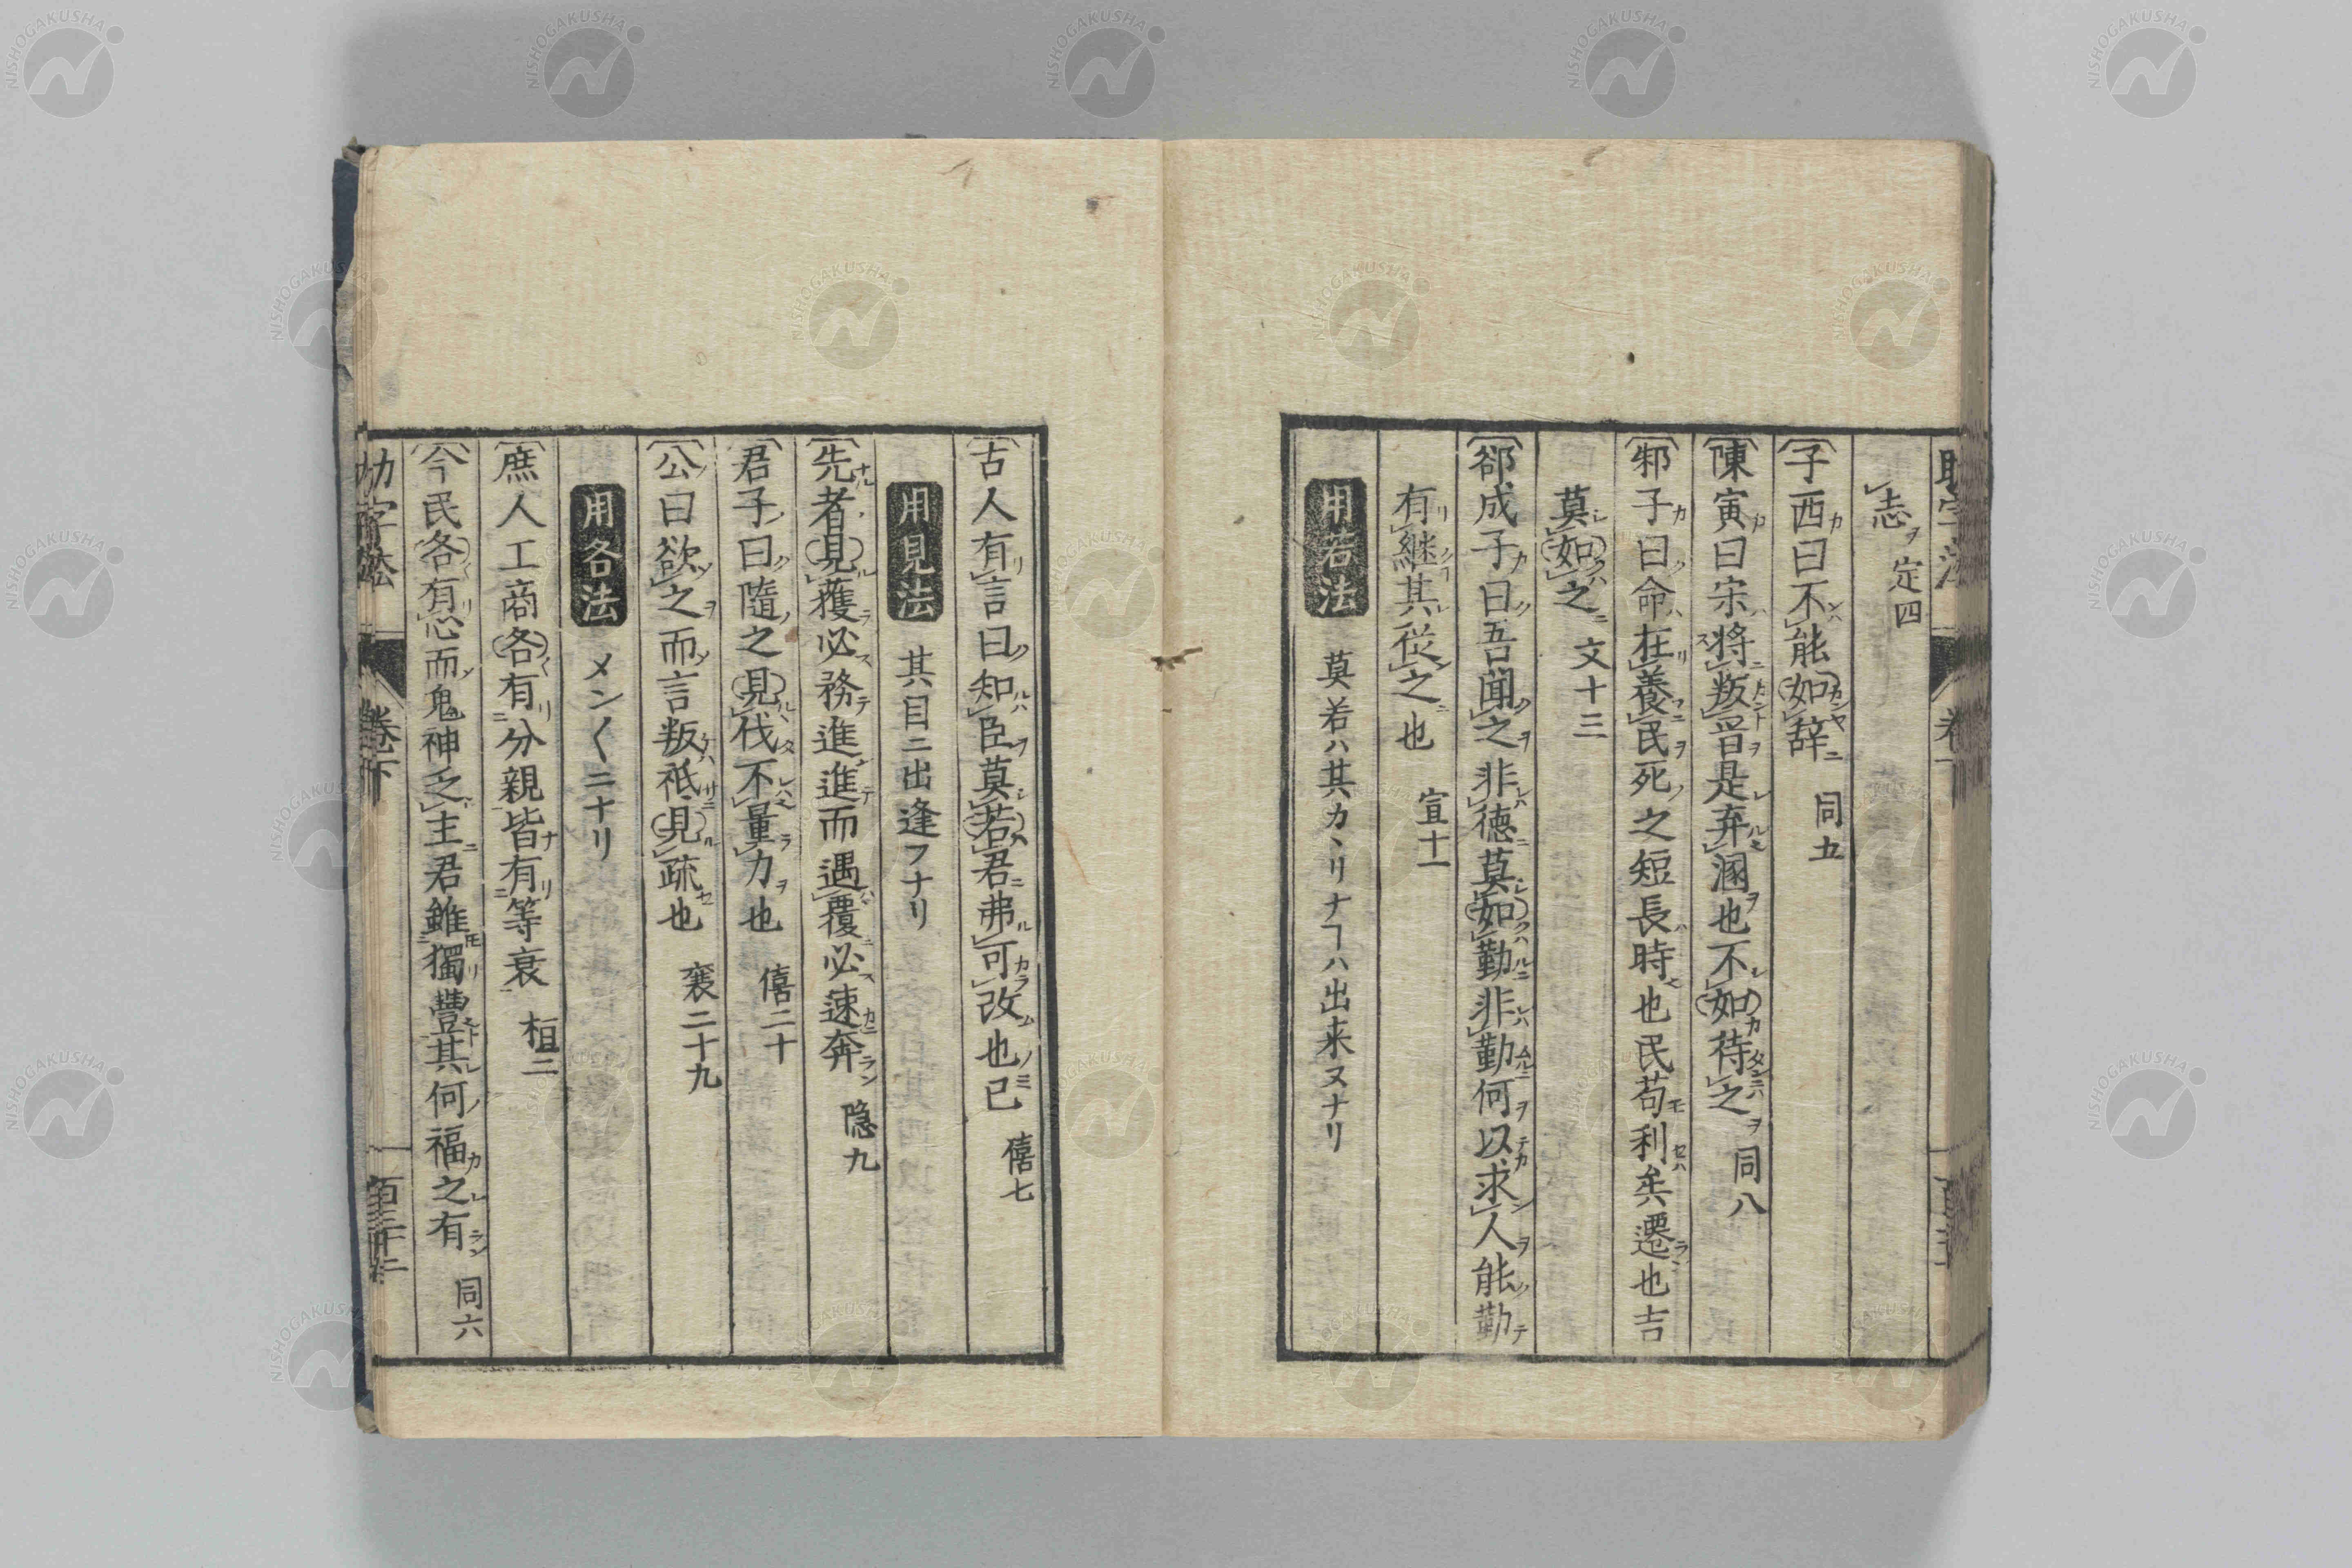 志 定四
子西曰不能如辞 同五
陳寅曰宋将叛晋是弃溷也不如待之 同八
邾子曰命在養民死之短長時也民苟利矣遷也吉
莫如之 文十三
郤成子曰吾聞之非徳莫如勤非勤何以求人能勤
有継其従之也 宣十一
用若法 莫若ハ其カヽリナヿハ出来ヌナリ
古人有言曰知臣莫若君弗可改也已 僖七
用見法 其目ニ出逢フナリ
先者見獲必務進進而遇覆必速奔 隠九
君子曰隨之見伐不量力也 僖二十
公曰欲之而言叛祇見疏也 襄二十九
用各法 メン〱ニナリ
庶人工商各有分親皆有等衰 桓二
今民各有心而鬼神乏主君雖獨豐其何福之有 同六
助字法 巻下
NISHOGAKUSHA